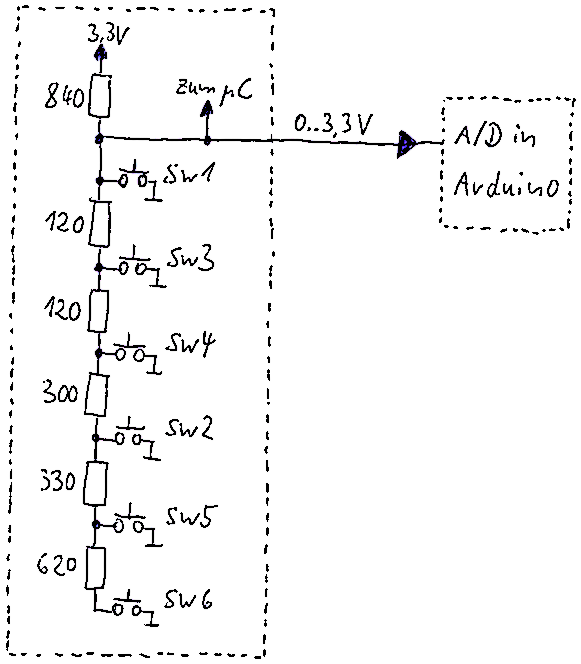 3,3V
840
zum µC
0..3,3V
A/D in
Arduino
SW1
120
SW3
120
SW4
300
SW2
330
SW5
620
SW6